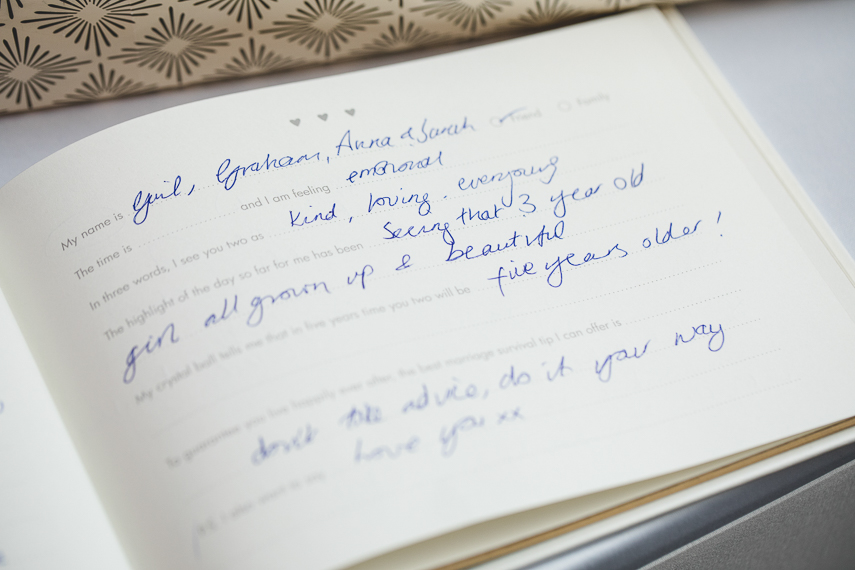 Friend Family
My name is Gail, Graham, Anna & Sarah
The time is and I am feeling emotional
In three words, I see you two as kind, loving, everyoung
The highlight of the day so far for me has been Seeing that 3 year old
girl all grown up & beautiful
My crystal ball tells me that in five years time you two will be five years older!
To guarantee you live happily ever after, the best marriage survival tip I can offer is
don't take advice, do it your way
P.S. I also want to say love you xx